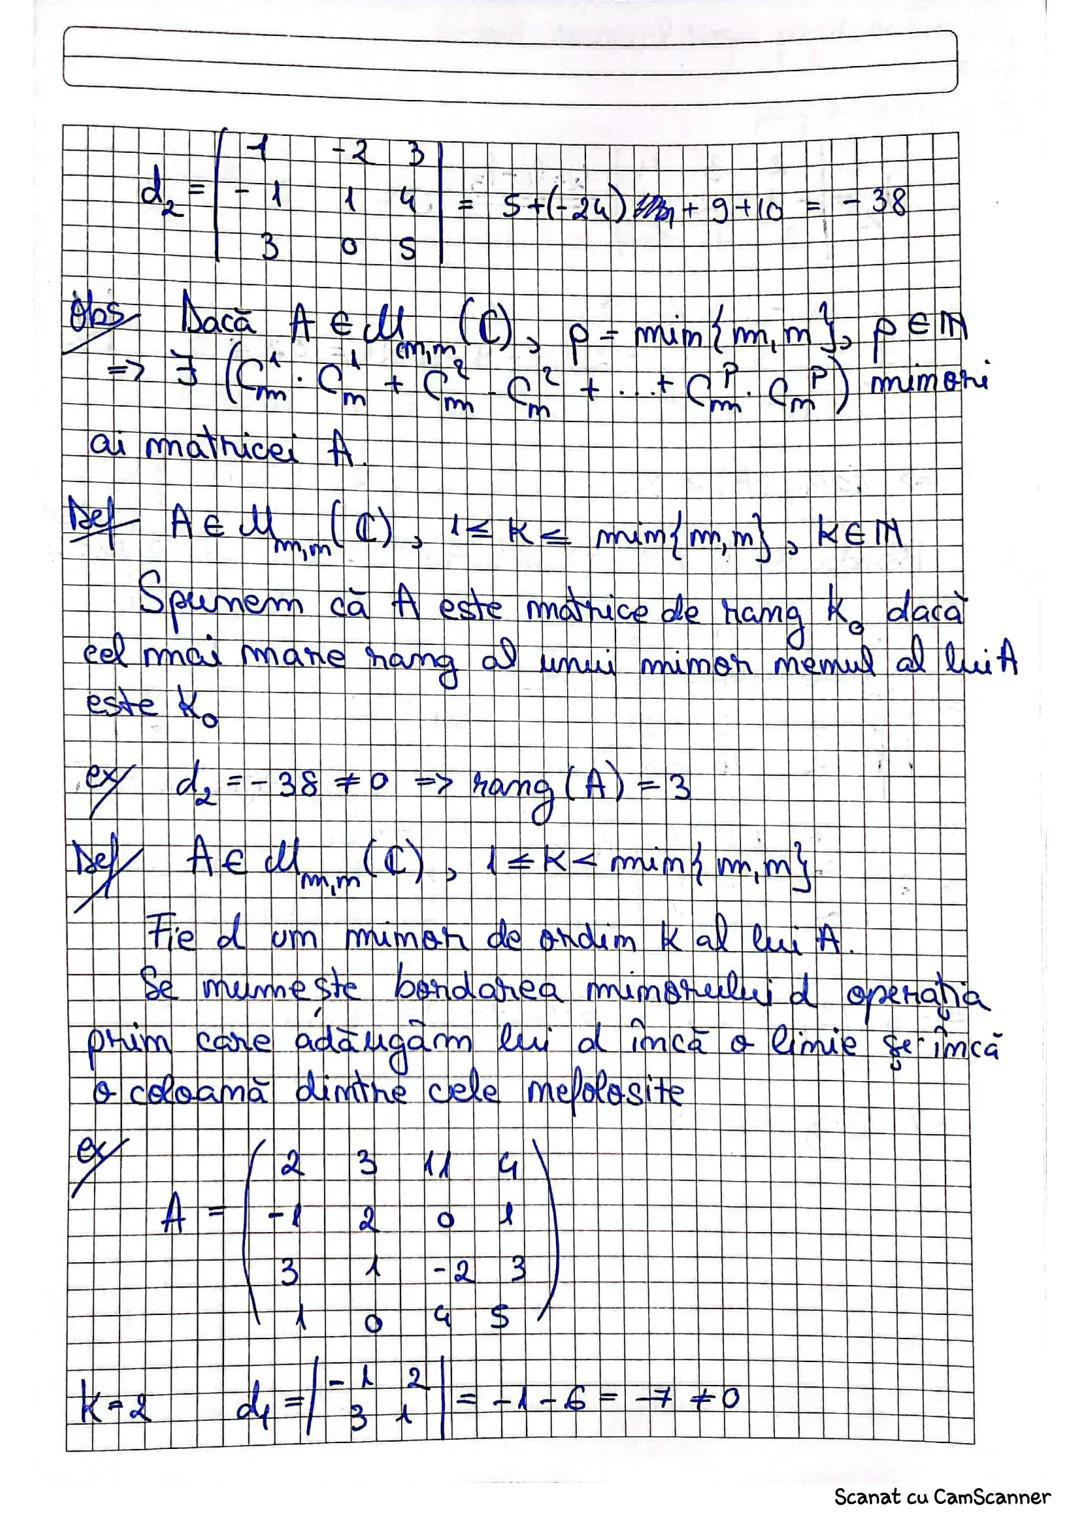 d₂ = | 1 -2 3 |
| -1 1 4 | = 5+(-24) + 9+10 = -38
| 3 0 5 |
Obs Dacă A ∈ M_{m,n}(ℂ), p = min{m,n}, p ∈ ℕ
=> ∃ (C_m^1 · C_n^1 + C_m^2 · C_n^2 + ... + C_m^p · C_n^p) minori
ai matricei A.
Def A ∈ M_{m,n}(ℂ), 1 ≤ K ≤ min{m,n}, K ∈ ℕ
Spunem că A este matrice de rang K₀ dacă
cel mai mare rang al unui minor nenul al lui A
este K₀
ex d₂ = -38 ≠ 0 => rang(A) = 3
Def A ∈ M_{m,n}(ℂ), 1 ≤ K < min{m,n}
Fie d un minor de ordin K al lui A.
Se numește bordarea minorului d operația
prin care adăugăm lui d încă o linie și încă
o coloană dintre cele nefolosite
ex
( 2 3 11 4 )
A = ( -1 2 0 1 )
( 3 1 -2 3 )
( 1 0 4 5 )
K=2 d₁ = | -1 2 | = -1-6 = -7 ≠ 0
| 3 1 |
Scanat cu CamScanner